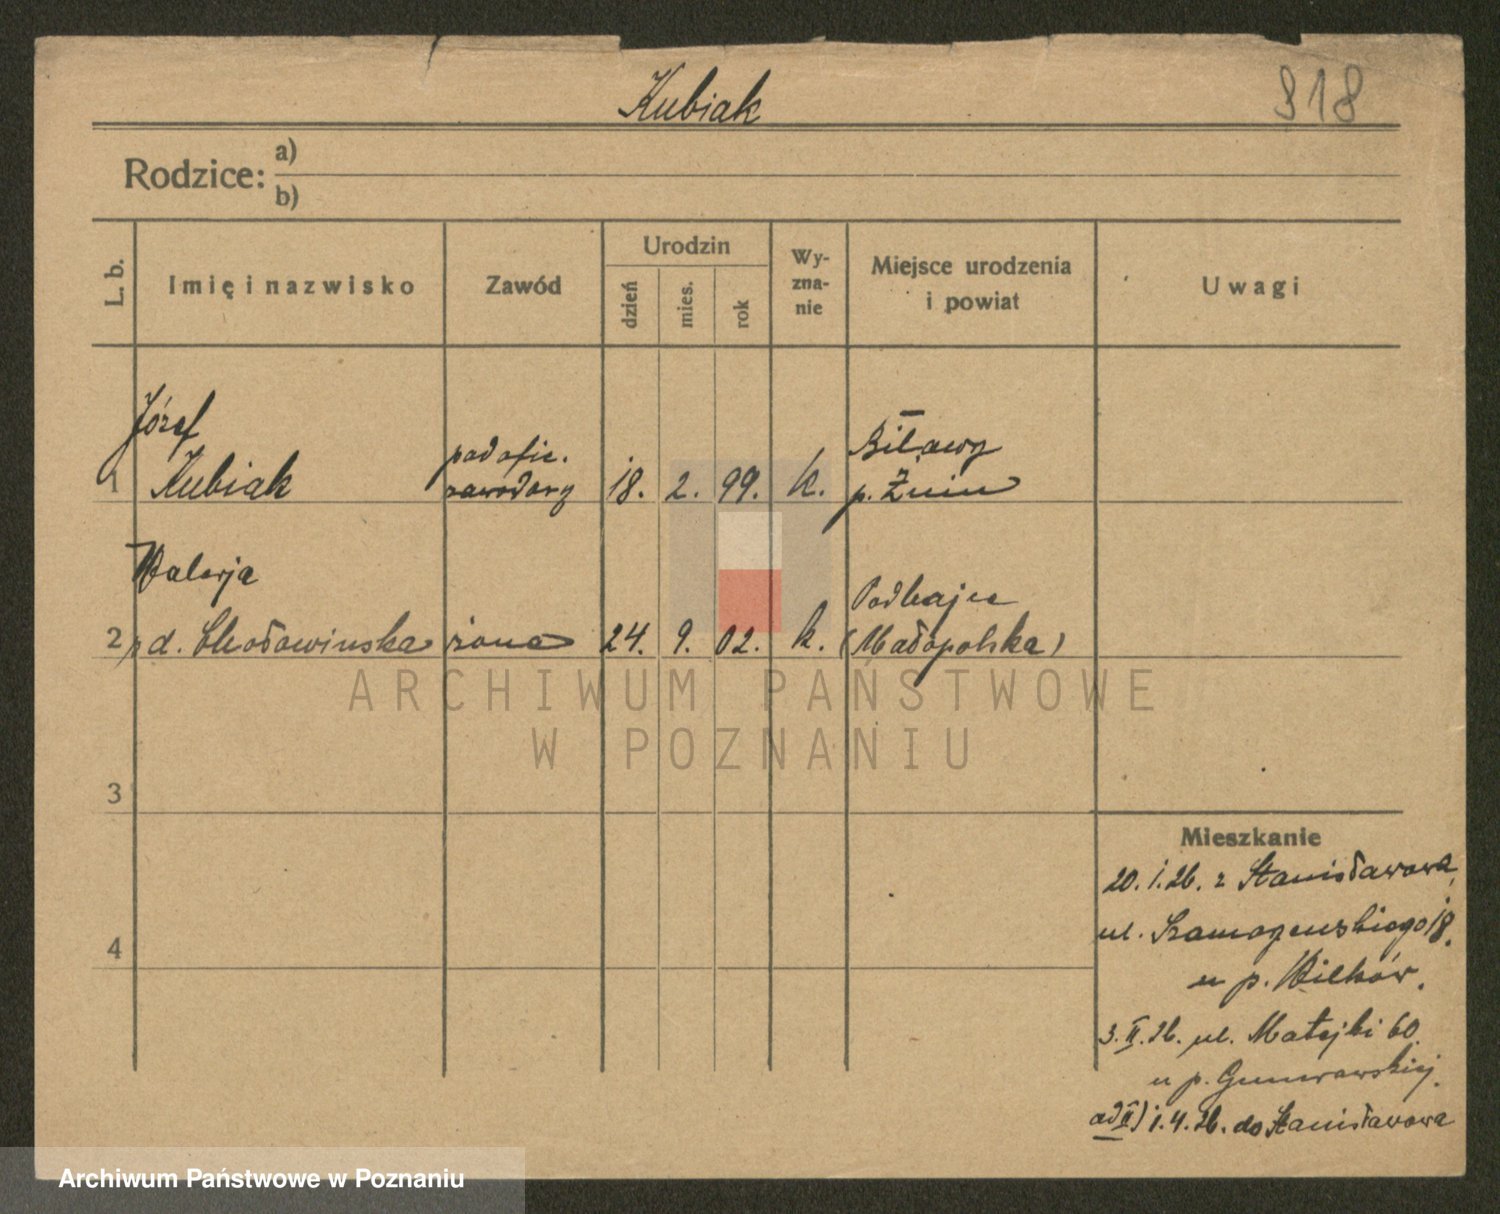 Kubiak
818
Rodzice: a)
b)
L. b.
Imię i nazwisko
Zawód
Urodzin
dzień
mies.
rok
Wy-
zna-
nie
Miejsce urodzenia
i powiat
Uwagi
Józef
1 Kubiak
podofic.
zawodowy
18. 2. 99. k.
p. Żnin
Walerja
2 żona 24. 9. 02. k.
Podhajce
(Małopolska)
3
4
Mieszkanie
20. 1. 26. z Stanisławowa,
ul. 18.
u p. Wilków.
3. II. 26. ul. Matejki 60.
u p.
ad II) 1. 4. 26. do Stanisławowa
ARCHIWUM PAŃSTWOWE
W POZNANIU
Archiwum Państwowe w Poznaniu